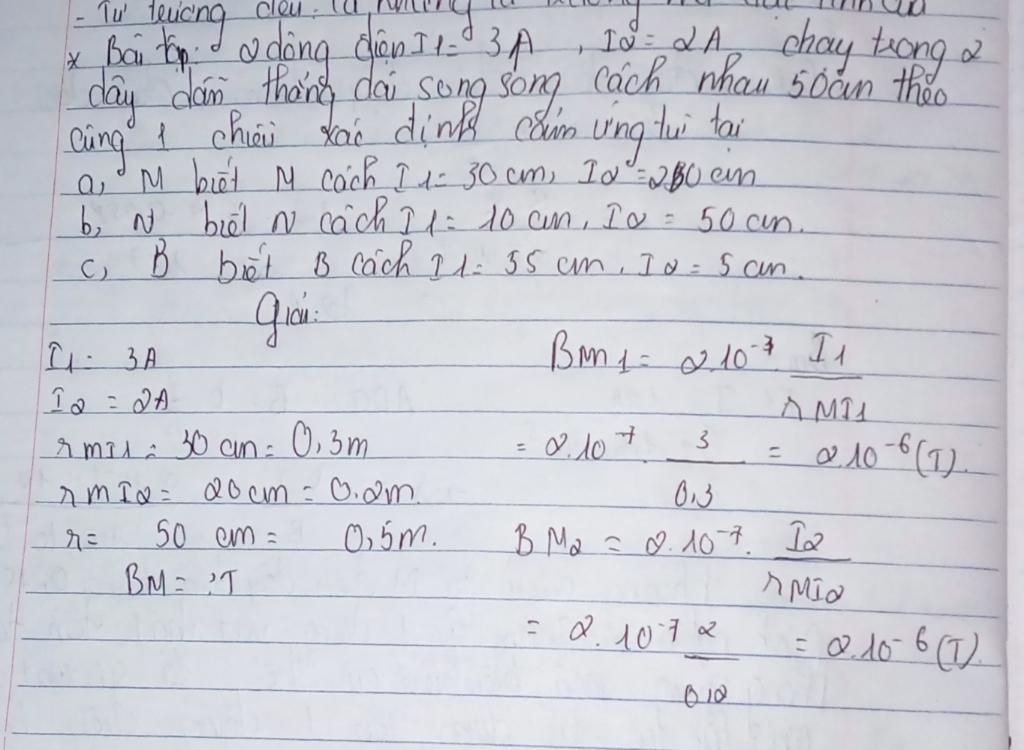 - Từ trường đều: là
* Bài tập: 2 dòng điện I1 = 3A, I2 = 2A chạy trong 2
dây dẫn thẳng dài song song cách nhau 50cm theo
cùng 1 chiều xác định cảm ứng từ tại
a, M biết M cách I1 = 30 cm, I2 = 20 cm
b, N biết N cách I1 = 10 cm, I2 = 50 cm.
c, B biết B cách I1 = 55 cm, I2 = 5 cm.
Giải:
I1 = 3A
I2 = 2A
rMI1 = 30 cm = 0,3m
rMI2 = 20cm = 0.2m.
r = 50 cm = 0,5m.
BM = ?T
BM1 = 2.10^-7. I1 / rMI1
= 2.10^-7. 3 / 0,3 = 2.10^-6 (T).
BM2 = 2.10^-7. I2 / rMI2
= 2.10^-7 2 / 0,2 = 2.10^-6 (T).